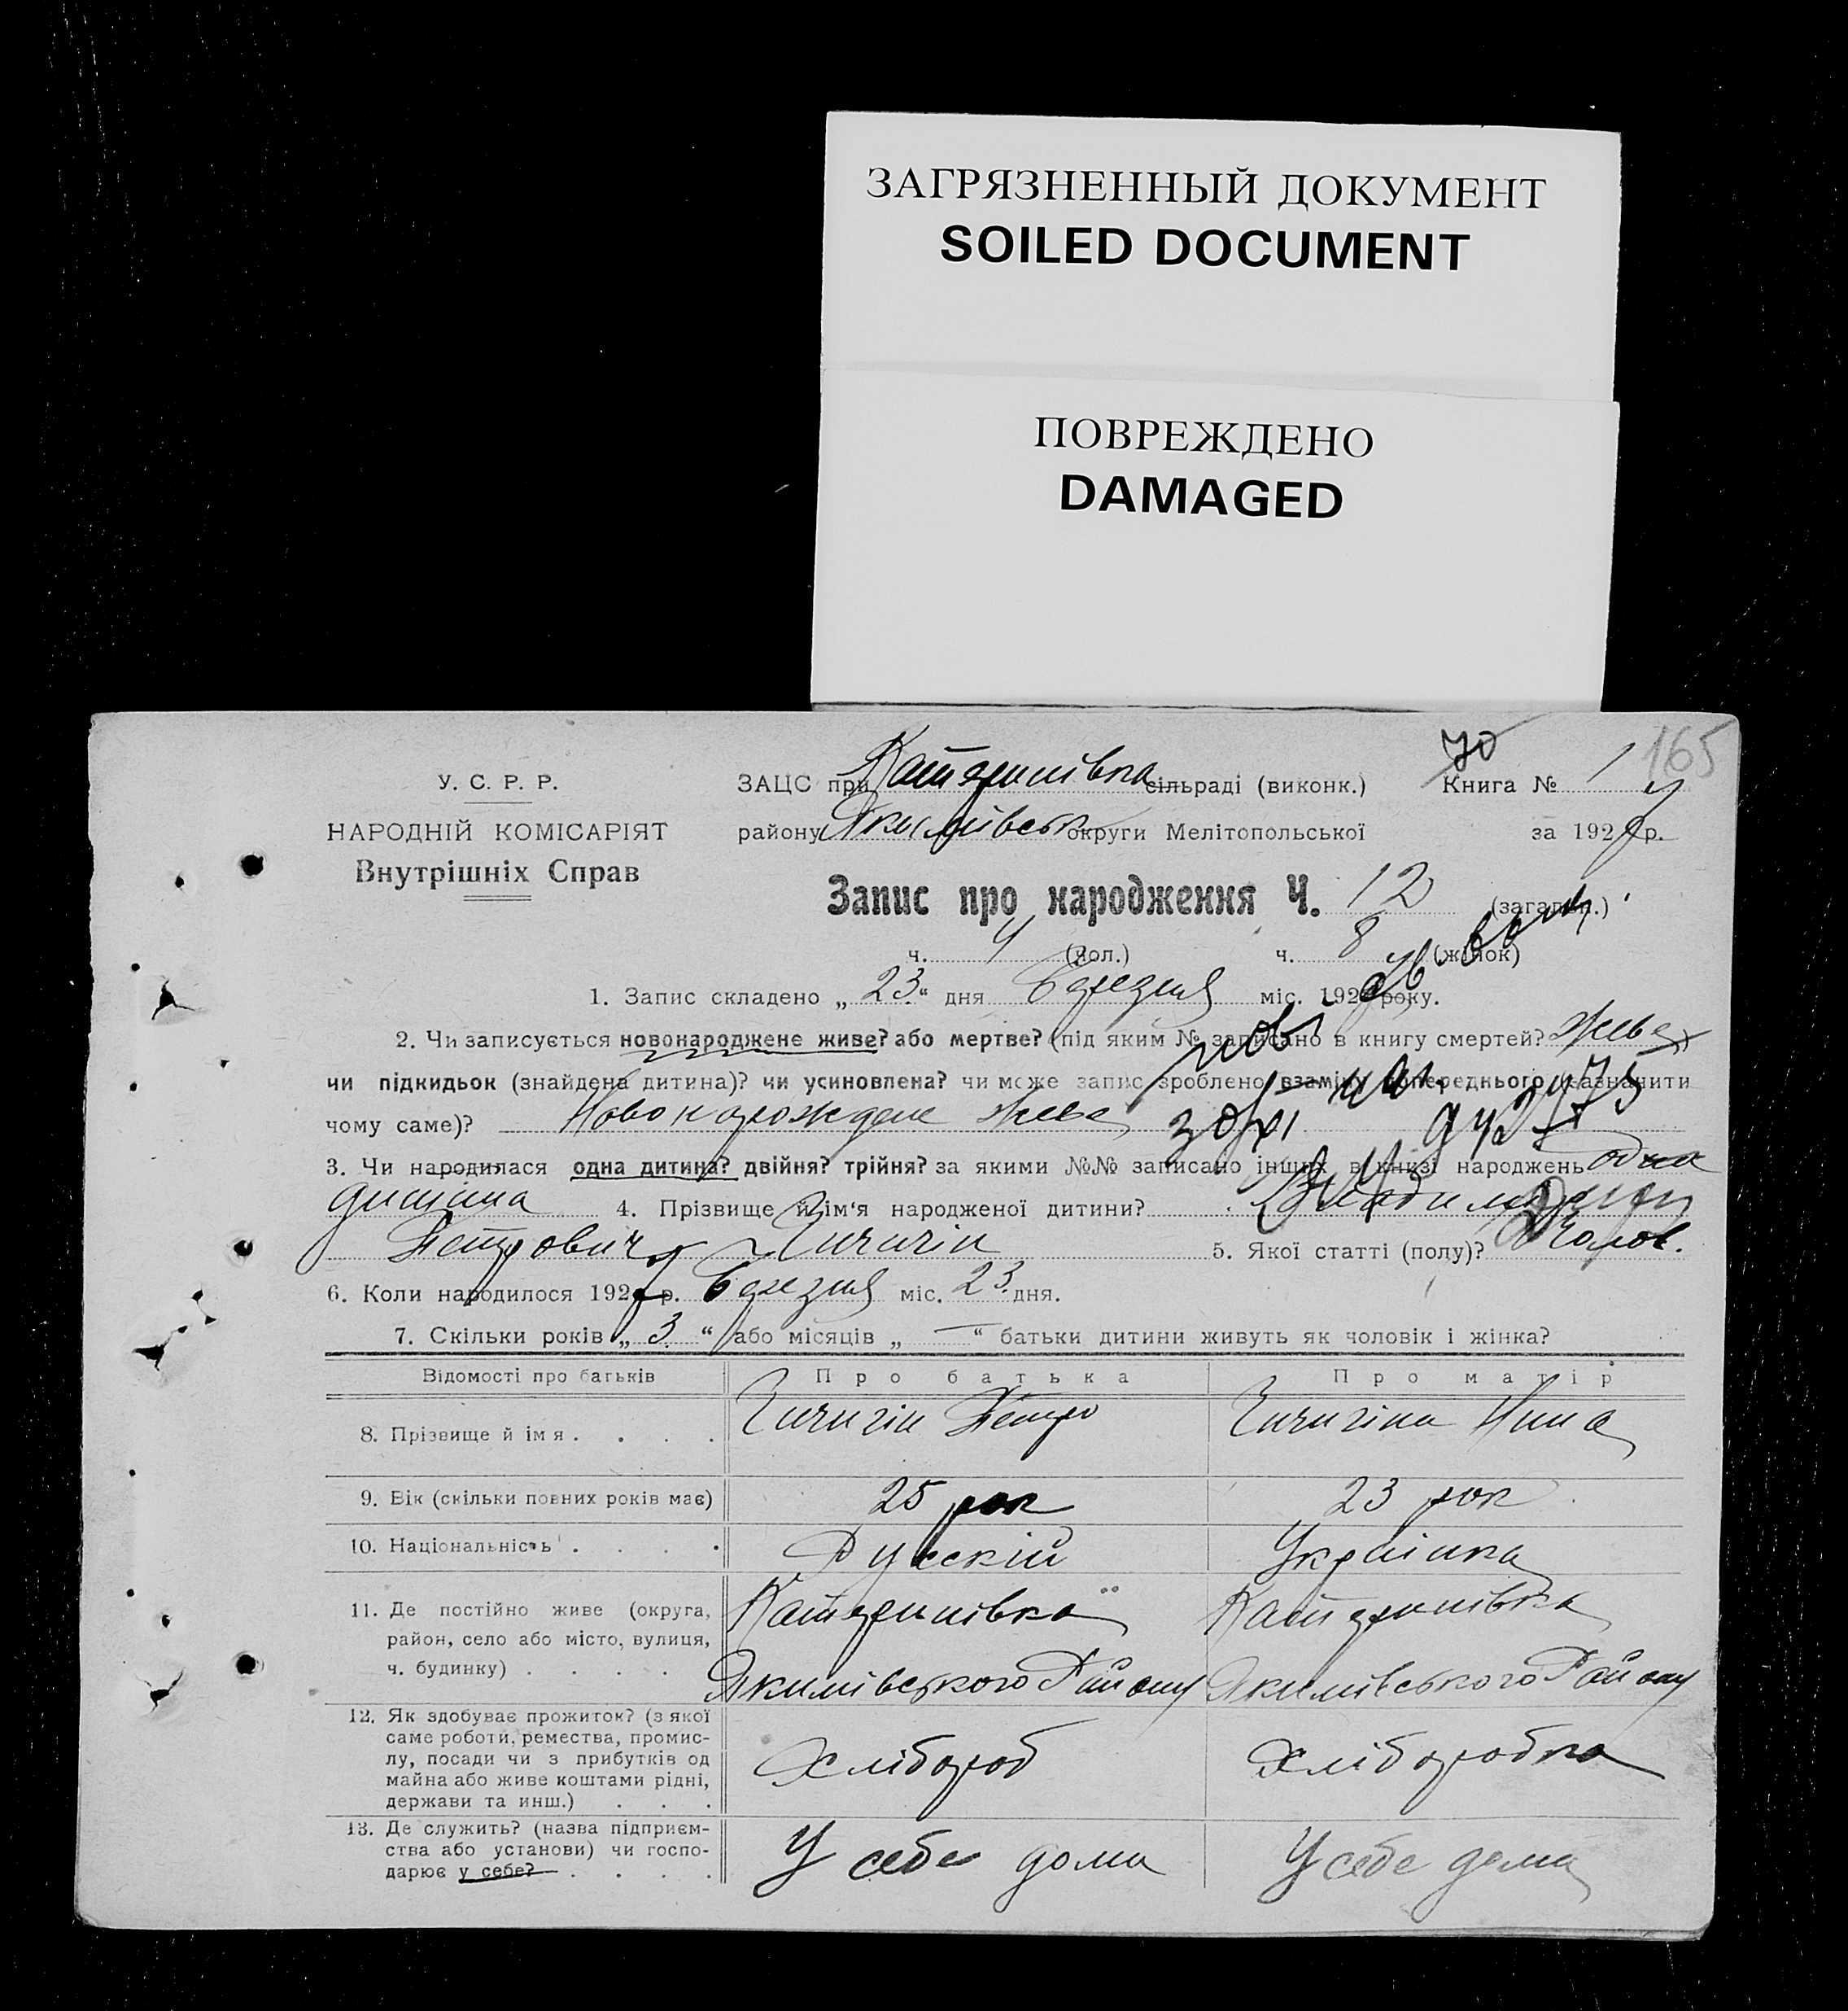 ЗАГРЯЗНЕННЫЙ ДОКУМЕНТ
SOILED DOCUMENT
ПОВРЕЖДЕНО
DAMAGED
70
165
У. С. Р. Р.
ЗАЦС при Катеринівка сільраді (виконк.) Книга № 1
НАРОДНІЙ КОМІСАРІЯТ
району Якимівськ округи Мелітопольської за 192 р.
Внутрішніх Справ
Запис про народження Ч. 12 (загальн.)
ч. 4 (чол.) ч. 8 (жінок)
1. Запис складено „ 23 “ дня Березня міс. 192 року.
2. Чи записується новонароджене живе? або мертве? (під яким № записано в книгу смертей? живе)
чи підкидьок (знайдена дитина)? чи усиновлена? чи може запис зроблено взамін попереднього (зазначити
чому саме)? Новонарождене живе
3. Чи народилася одна дитина? двійня? трійня? за якими №№ записано інших в книзі народжень одна
дитина 4. Прізвище й ім'я народженої дитини? Владимир
Петрович Чичигін 5. Якої статті (полу)? Чолов.
6. Коли народилося 192 р. Березня міс. 23 дня.
7. Скільки років „ 3 “ або місяців „ — “ батьки дитини живуть як чоловік і жінка?
Відомості про батьків Про батька Про матір
8. Прізвище й імя . . . . Чичигін Петро Чичигіна Нина
9. Вік (скільки повних років має) 25 рок 23 рок
10. Національність . . . . Русскій Українка
11. Де постійно живе (округа, Катеринівка Катеринівка
район, село або місто, вулиця,
ч. будинку) . . . . Якимівського Району Якимівського Району
12. Як здобуває прожиток? (з якої
саме роботи, ремества, промис-
лу, посади чи з прибутків од Хлібороб Хліборобка
майна або живе коштами рідні,
держави та инш.) . . .
13. Де служить? (назва підприєм-
ства або установи) чи госпо- У себе дома У себе дома
дарює у себе? . . . .